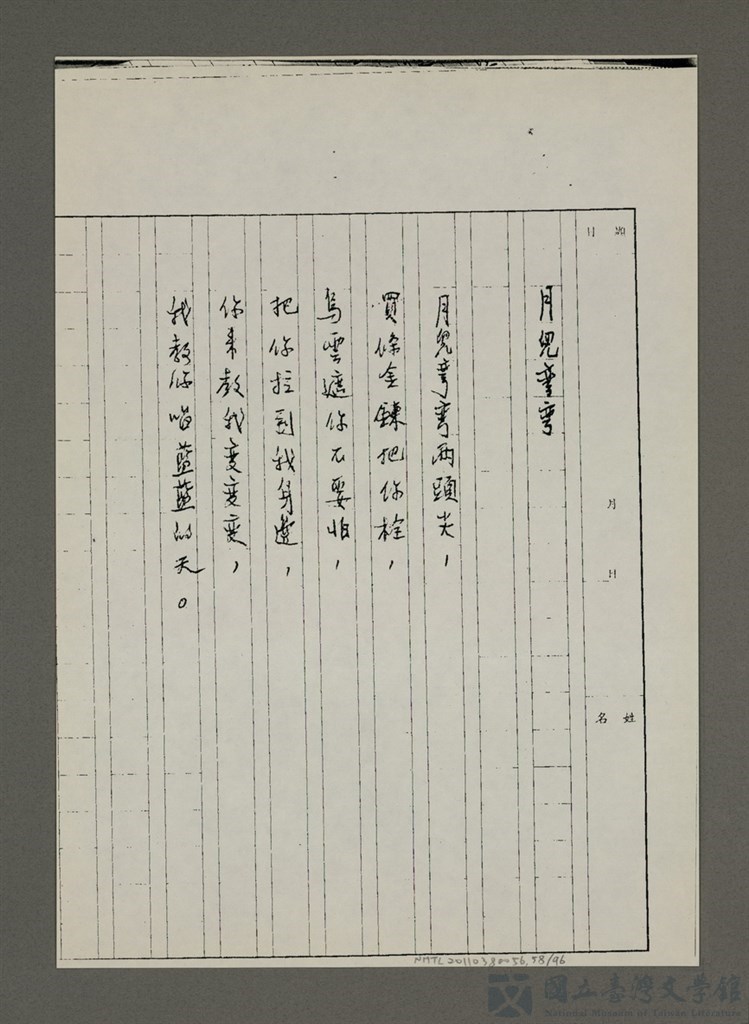 題目
月
日
姓名
月兒彎彎
月兒彎彎兩頭尖，
買條金鍊把你栓，
烏雲遮你不要怕，
把你拉到我身邊，
你來教我變變變，
我教你唱藍藍的天。
NMTL20110380056,58/96
國立臺灣文學館
National Museum of Taiwan Literature